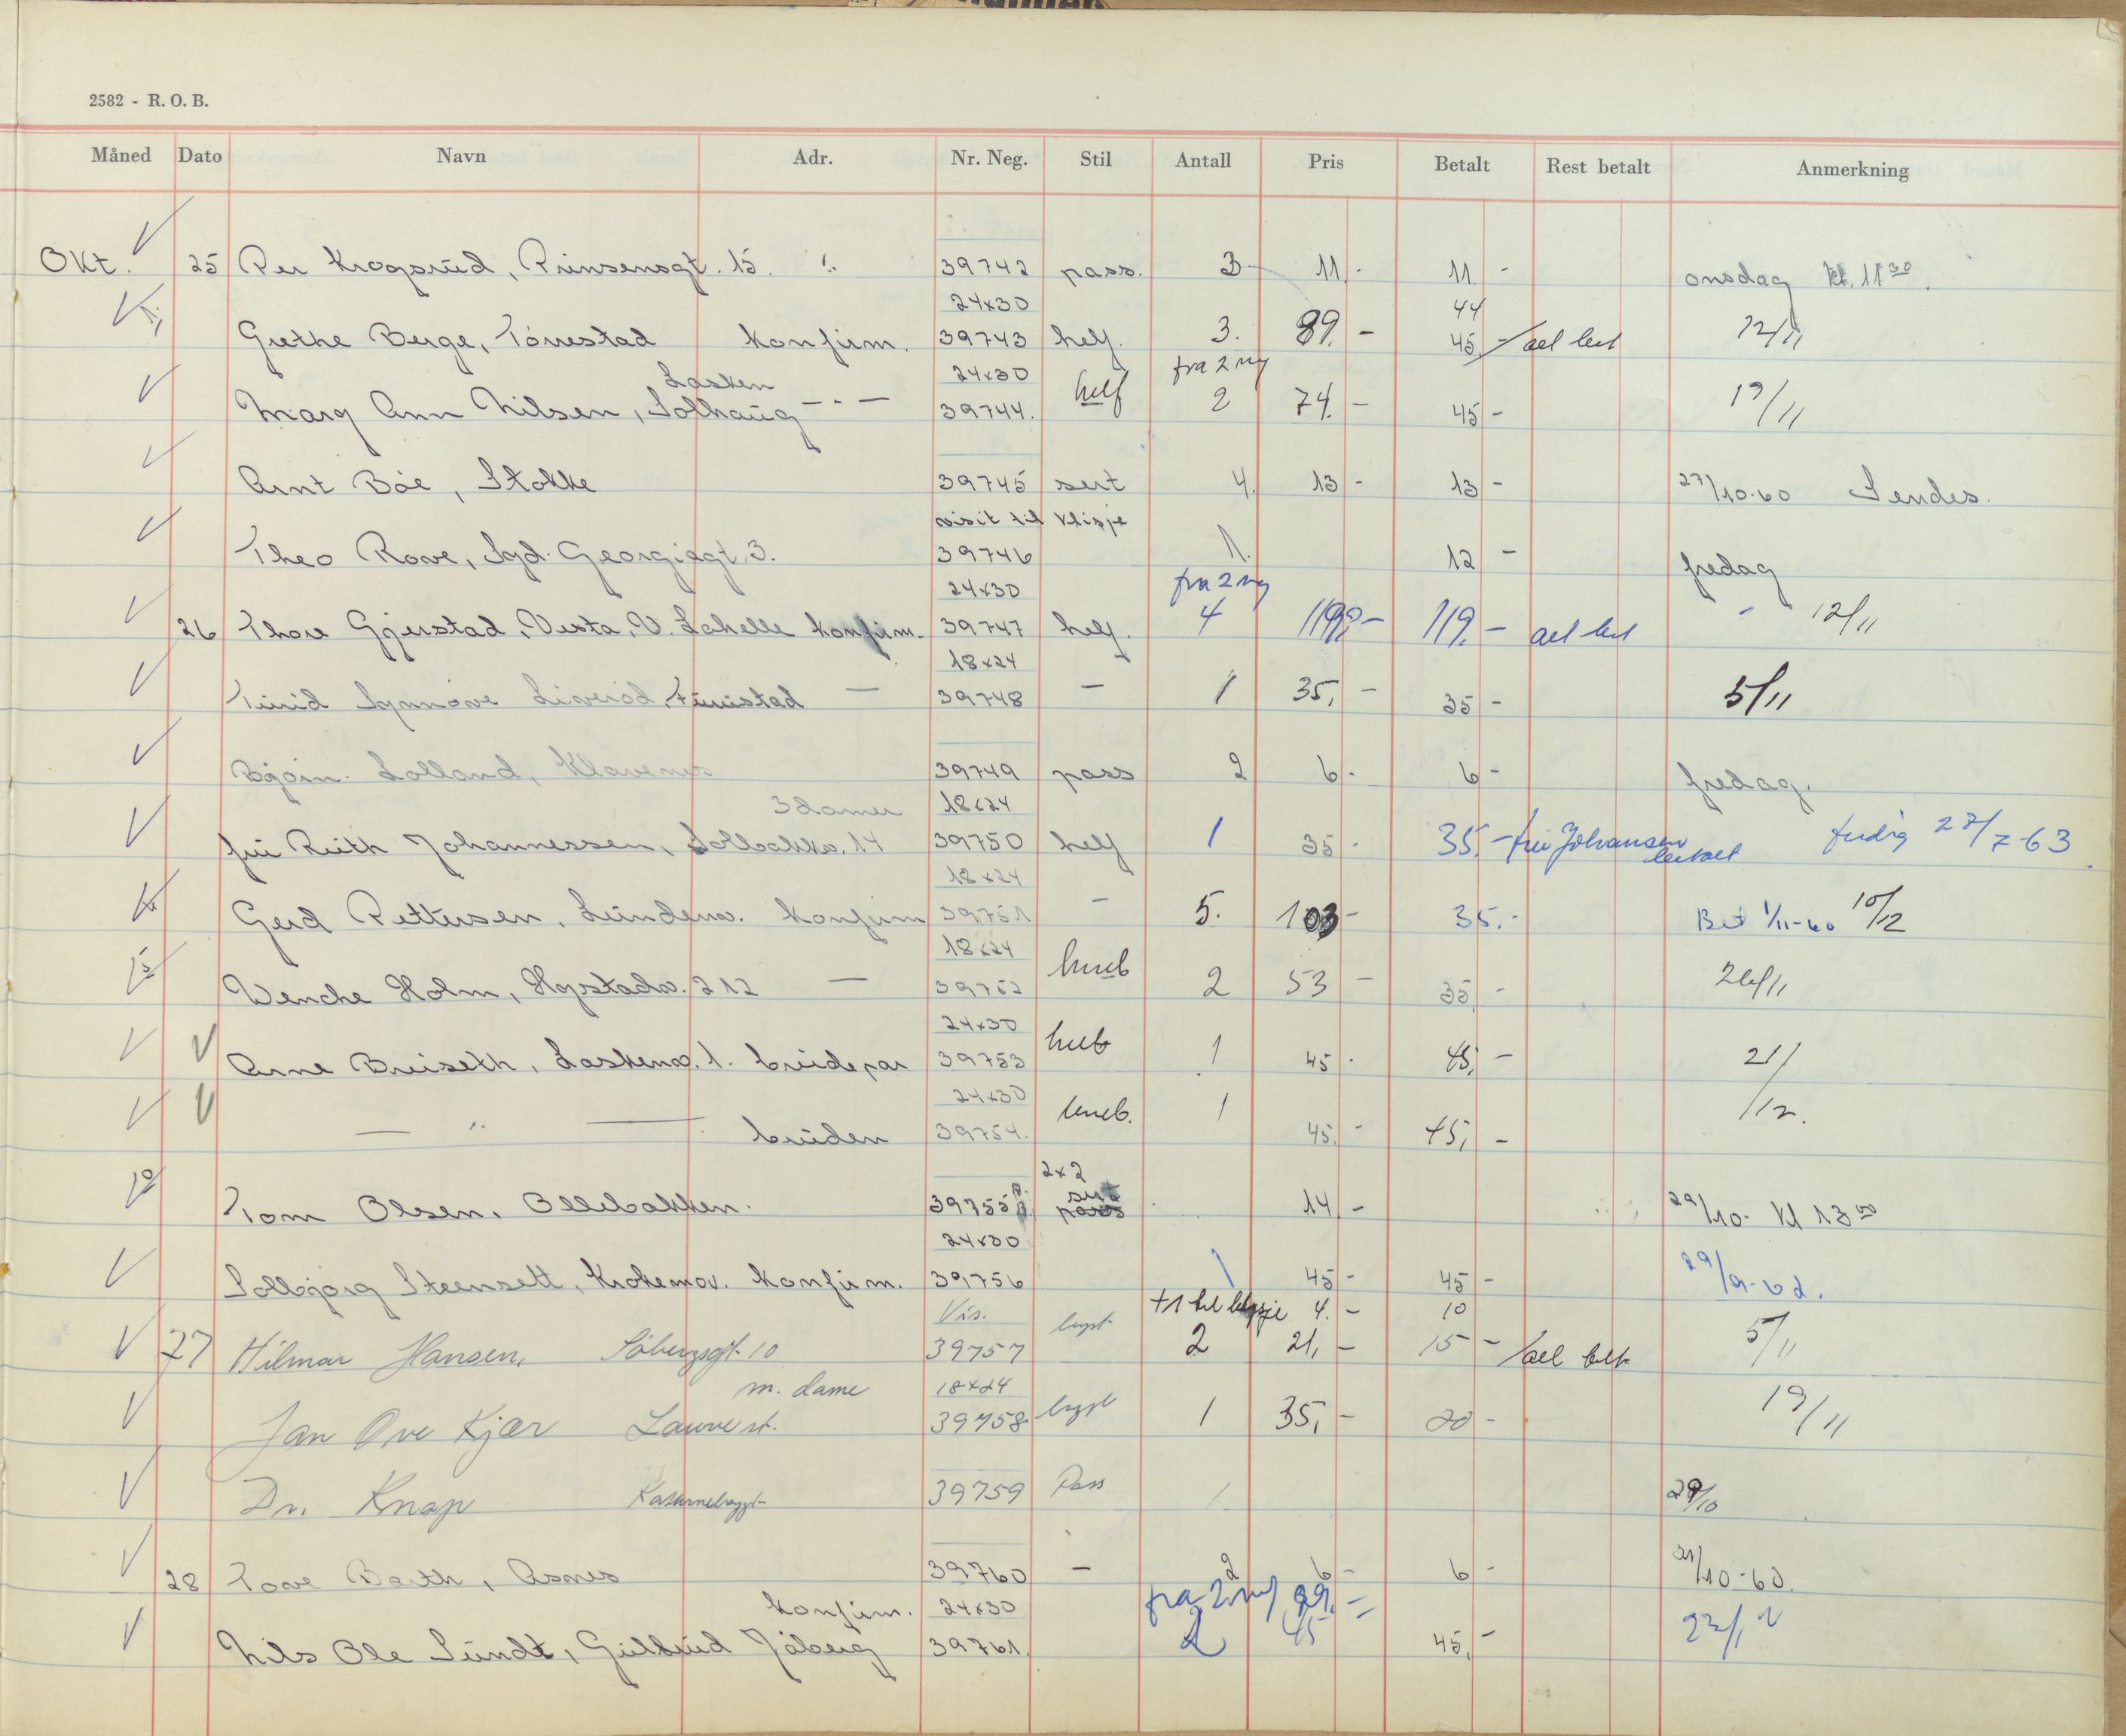 2582 - R. O. B.
Måned Dato Navn Adr. Nr. Neg. Stil Antall Pris Betalt Rest betalt Anmerkning
Okt. 25 Per Krogsrud, Prinsensgt. 15. 39742 pass. 3 11.- 11 - onsdag kl. 11 30
24x30 44
Grethe Berge, Tønnestad konfirm. 39743 helf. 3. 89.- 45 - 12/11
Lasken 24x30 fra 2 neg
Mary Ann Nilsen, Solhaug - " - 39744. helf 2 74.- 45 - 19/11
Arnt Bøe, Stokke 39745 sert 4. 13 - 13 - 27/10-60 Sendes.
visit til Klisje
Theo Rove, 3. 39746 1. 12 - fredag
24x30 fra 2 neg
26 Thore Gjerstad, Vesta, konfirm. 39747 helf. 4 119,- 119.- 12/11
18x24
Synnøve 39748 - 1 35,- 35 - 5/11
Bjørn Lolland, Klavenes 39749 pass 2 6.- 6 - fredag.
3 damer 18x24
fru Ruth Johannessen, Solbakkv. 14 39750 helf 1 35 - 35.- fru Johansen betalt ferdig 27/7-63
18x24
Gerd Pettersen, Lundenv. konfirm 39751 - 5. 103 - 35.- Bet 1/11-60 10/12
18x24
Wenche Holm, 212 - 39752 2 53 - 35 - 26/11
24x30
Arne 1. brudepar 39753 1 45 - 45,- 21/
24x30
- " - bruden 39754. 1 45.- 45,- /12.
2x2
Tom Olsen, Ollebakken. 39755 sert 14 - 29/10- Kl 13 00
24x30
Solbjørg Steensett, Krokemov. konfirm. 39756 1 45 - 45 - 29/9-62.
Vis. +1 til klisje 4.- 10
27 Hilmar Hansen, 10 39757 2 21,- 15 - 5/11
m. dame 18x24
Jan Ove Kjær 39758 1 35,- 20 - 19/11
Dr. Knap 39759 Pass 1 29/10
28 Tove Barth, Asnes 39760 - 2 6 - 6 - 31/10-60.
konfirm. 24x30 fra 2 neg 99.-
Nils Ole Sundt, Gulbrud Jåberg 39761. 2 45 45,-